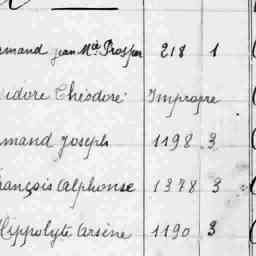 rmand jean Mie Prosper 218 1
idore Théodore Impropre
rmand Joseph 1198 3
rançois Alphonse 1378 3
Hippolyte Arsène 1190 3